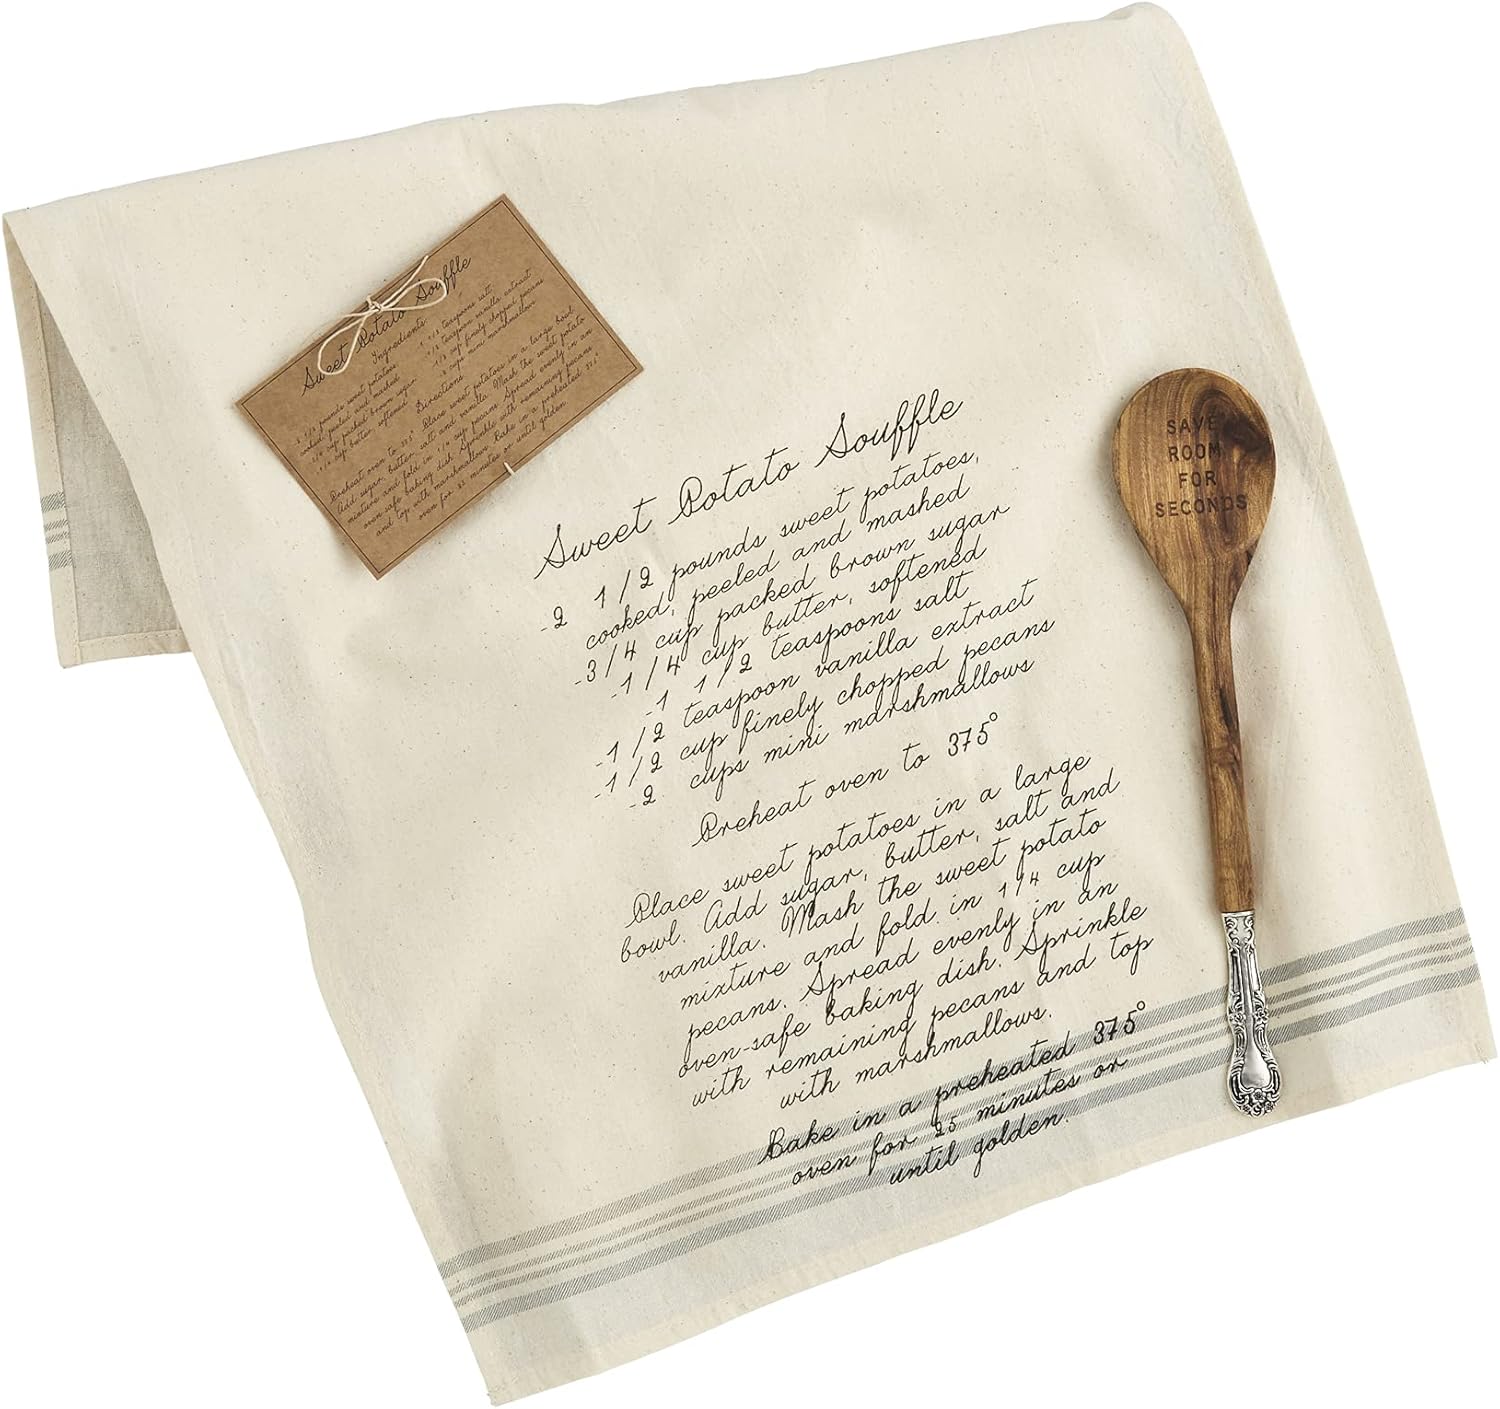 Sweet Potato Souffle
Ingredients
-2 1/2 pounds sweet potatoes
cooked, peeled and mashed
-3/4 cup packed brown sugar
-1/4 cup butter, softened
-1 1/2 teaspoons salt
-1/2 teaspoon vanilla extract
-1/2 cup finely chopped pecans
-2 cups mini marshmallows
Directions
Preheat oven to 375° Place sweet potatoes in a large bowl.
Add sugar, butter, salt and vanilla. Mash the sweet potato
mixture and fold in 1/4 cup pecans. Spread evenly in an
oven safe baking dish. Sprinkle with remaining pecans
and top with marshmallows. Bake in a preheated 375°
oven for 25 minutes or until golden
Sweet Potato Souffle
-2 1/2 pounds sweet potatoes,
cooked, peeled and mashed
-3/4 cup packed brown sugar
-1/4 cup butter, softened
-1 1/2 teaspoons salt
-1/2 teaspoon vanilla extract
-1/2 cup finely chopped pecans
-2 cups mini marshmallows
Preheat oven to 375°
Place sweet potatoes in a large
bowl. Add sugar, butter, salt and
vanilla. Mash the sweet potato
mixture and fold in 1/4 cup
pecans. Spread evenly in an
oven-safe baking dish. Sprinkle
with remaining pecans and top
with marshmallows.
Bake in a preheated 375°
oven for 25 minutes or
until golden.
SAVE
ROOM
FOR
SECONDS